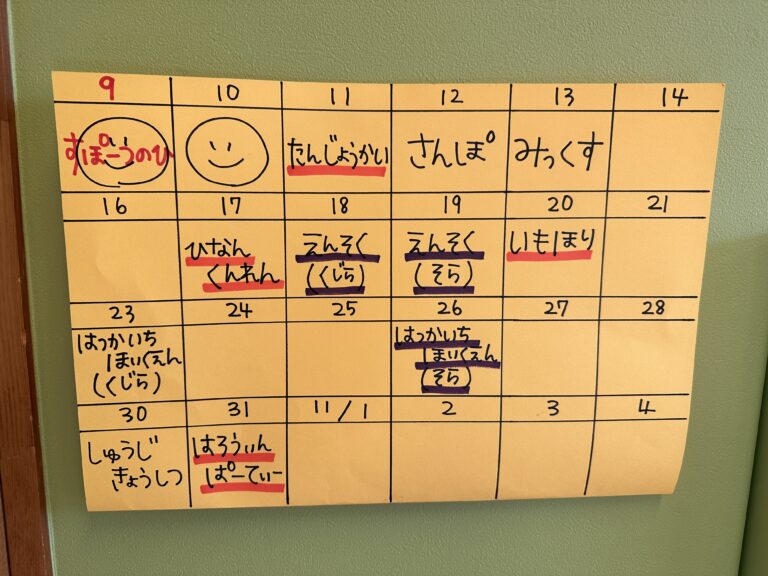 9 10 11 12 13 14
すぽーつのひ たんじょうかい さんぽ みっくす
16 17 18 19 20 21
ひなん えんそく えんそく いもほり
くんれん (くじら) (そら)
23 24 25 26 27 28
はっかいち はっかいち
ほいくえん ほいくえん
(くじら) (そら)
30 31 11/1 2 3 4
しゅうじ はろうぃん
きょうしつ ぱーてぃー